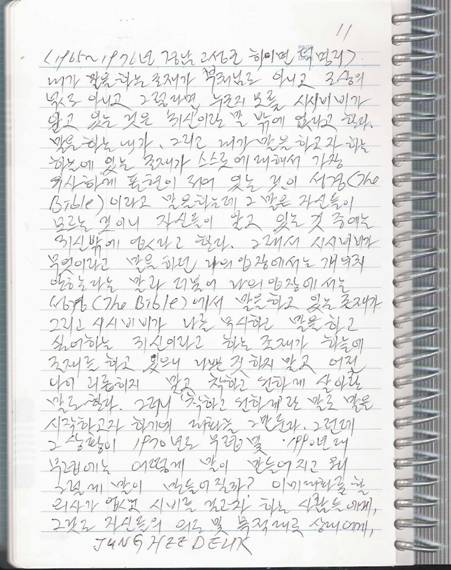 11
(1965~1970년 경남 고성군 하이면
내가 말을 하는 존재가 부처님도 아니고 조상의
넋도 아니고 그렇다면 누군지 모를 시시비비가
알고 있는 것은 귀신이라는 말 밖에 없다고 한다.
말을 하는 내가. 그리고 내가 말을 하고자 하는
하늘에 있는 존재가 스스로에 대해서 가장
유사하게 표현이 되어 있는 것이 성경(The
Bible)이라고 말을 하는데 그 말을 자신들이
모르는 것이니 자신들이 알고 있는 것 중에는
귀신밖에 없다라고 한다. 그래서 시시비비가
무엇이라고 말을 하던 나의 입장에서는 개의치
않는다는 말과 더불어 나의 입장에서는
성경(The Bible)에서 말을 하고 있는 존재가
그리고 시시비비가 나를 하고 말을 하고
싶어하는 귀신이라고 하는 존재가 하늘에
존재를 하고 있으니 나쁜 것 하지 말고
말고 착하고 선하게 살아라
말을 한다. 그러니 착하고 선하게란 말로 말을
시작하고자 하기에 그 말을 한다. 그런데
그 상황이 1970년도 무렵 및 1990년대
무렵에는 어떻게 말이 만들어지고 왜
그렇게 말이 만들어질까? 이기대화를 할
의사가 없고 시비를 걸고자 하는 사람들에게,
그것도 자신들의 의도 및 목적대로 상대에게,
JUNG HEE DEUK